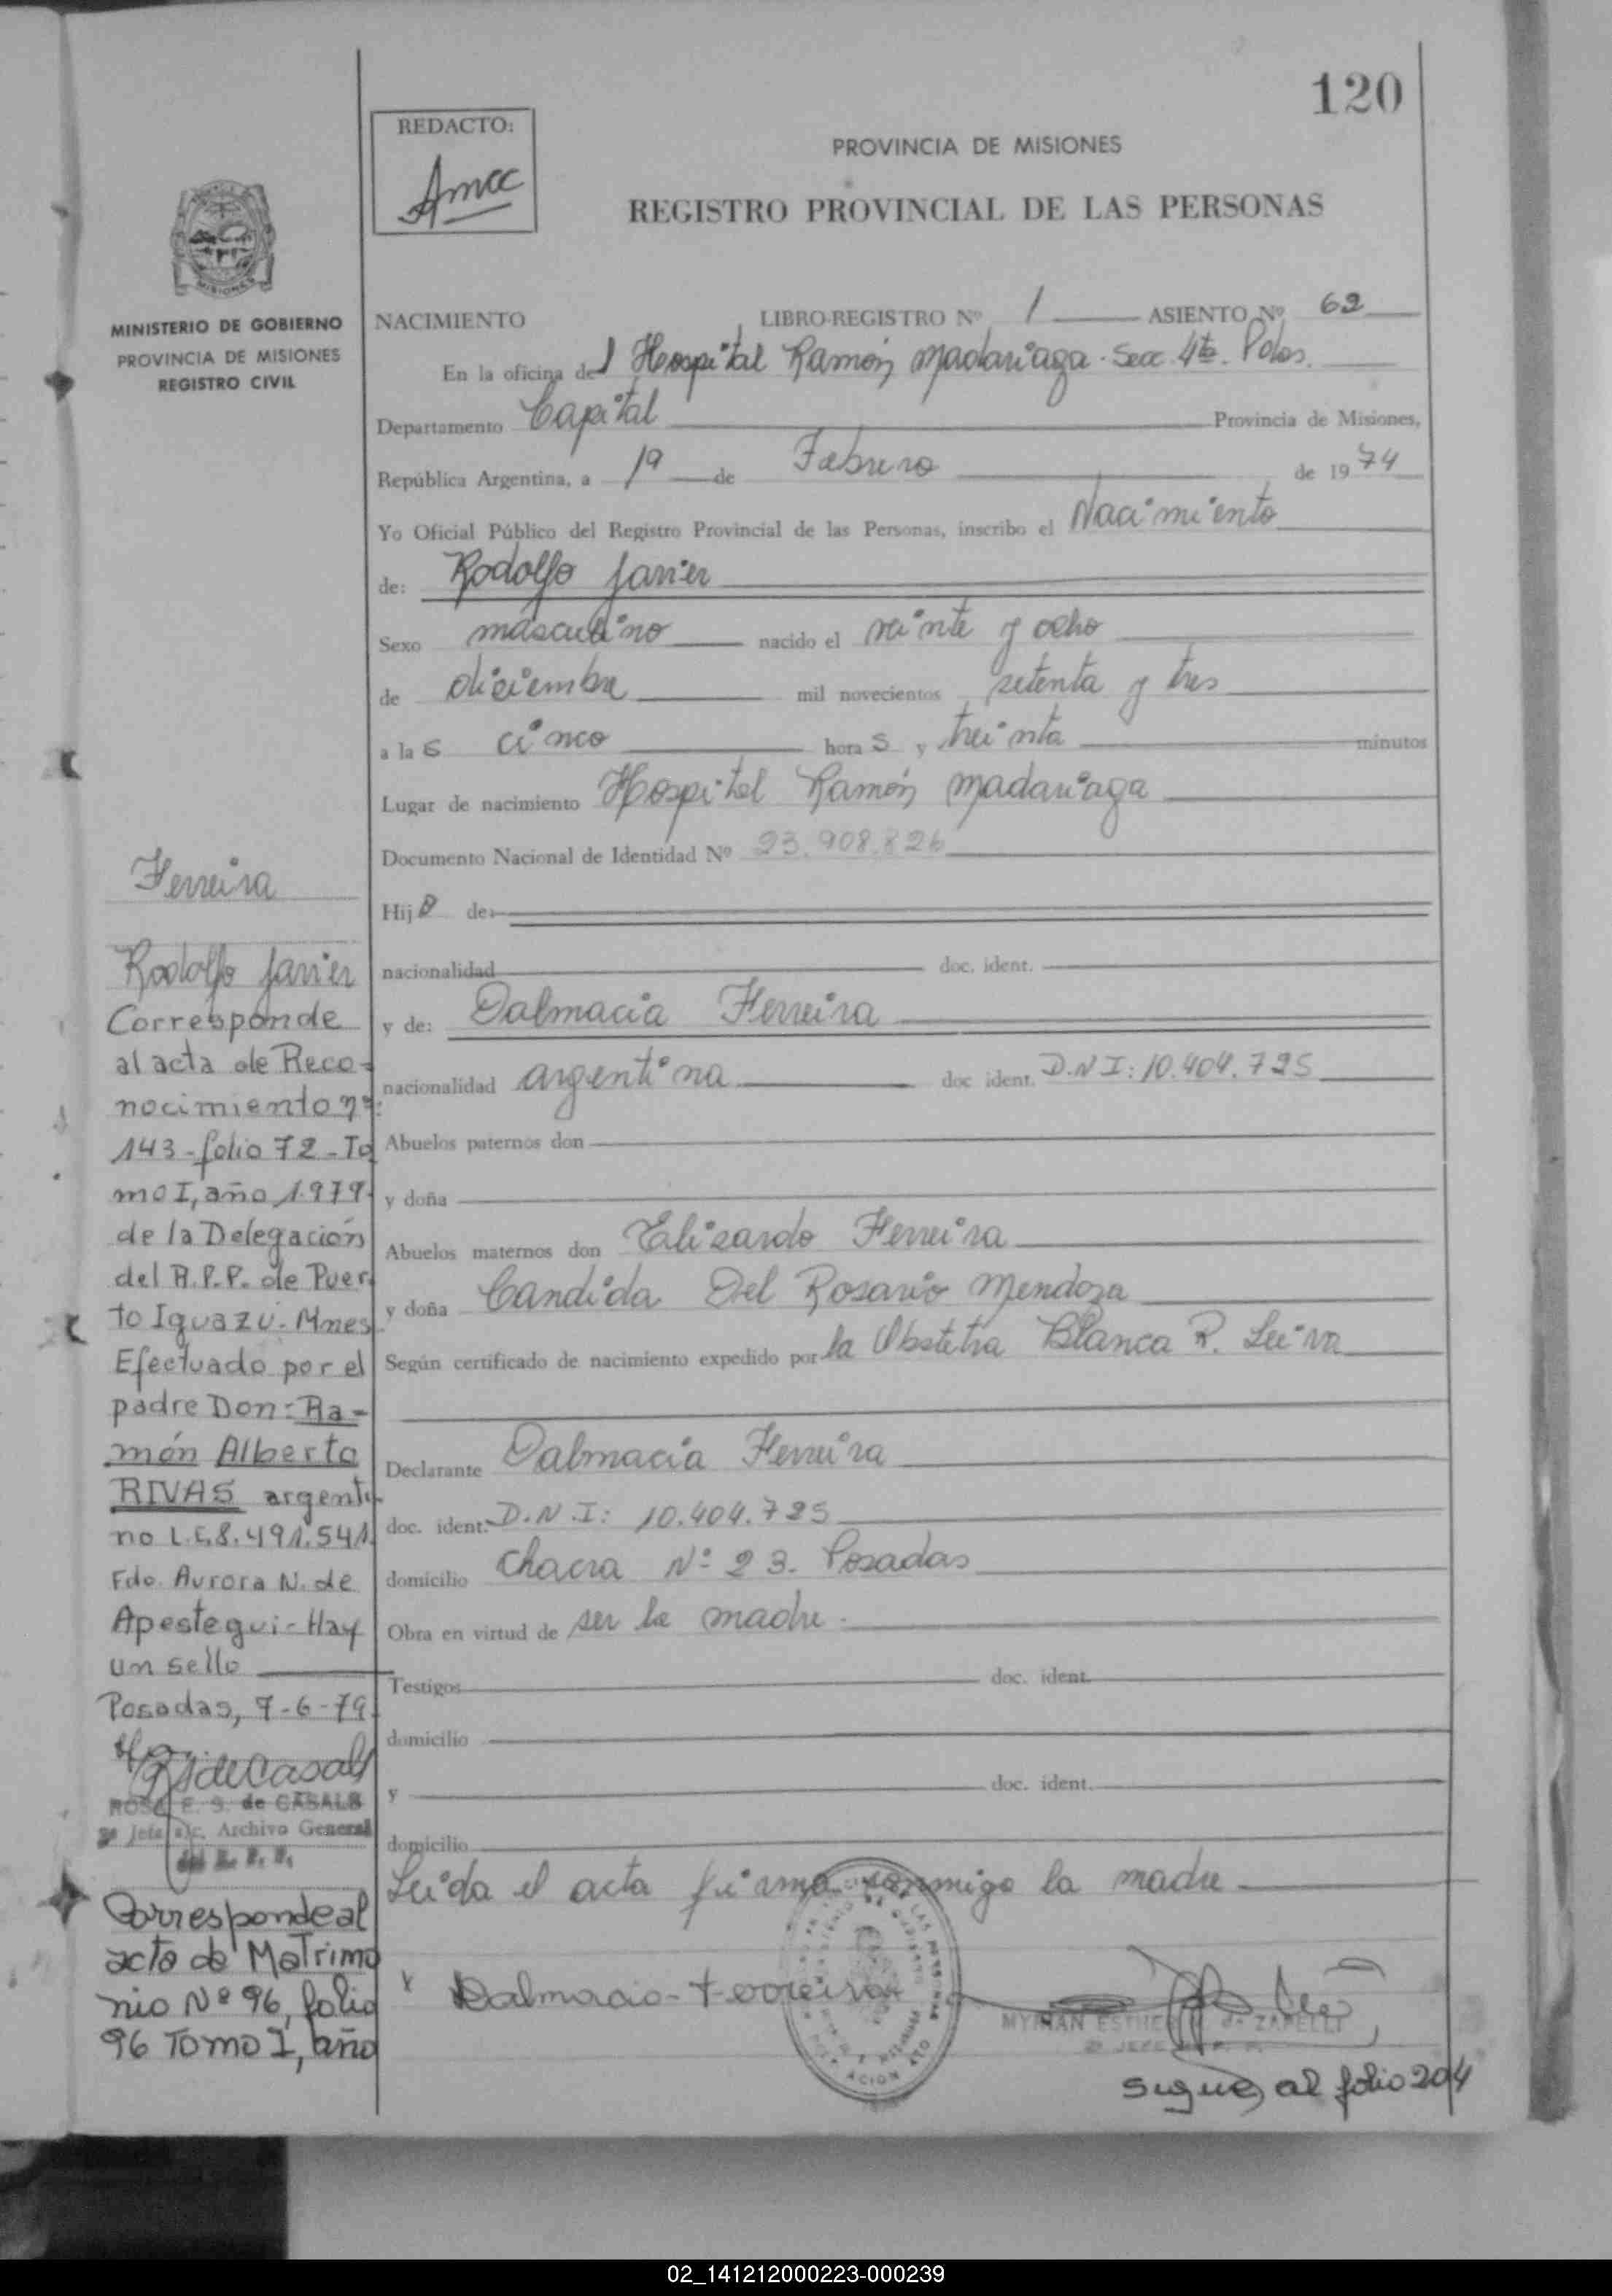 120
REDACTO:
Amcc
PROVINCIA DE MISIONES
REGISTRO PROVINCIAL DE LAS PERSONAS
MISIONES
MINISTERIO DE GOBIERNO
PROVINCIA DE MISIONES
REGISTRO CIVIL
NACIMIENTO LIBRO-REGISTRO Nº 1 ASIENTO Nº 62
En la oficina del Hospital Ramón Madariaga. Secc. 4ta. Pdas.
Departamento Capital Provincia de Misiones,
República Argentina, a 19 de Febrero de 1974
Yo Oficial Público del Registro Provincial de las Personas, inscribo el Nacimiento
de: Rodolfo Javier
Sexo masculino nacido el veinte y ocho
de diciembre mil novecientos setenta y tres
a las cinco horas y treinta minutos
Lugar de nacimiento Hospital Ramón Madariaga
Documento Nacional de Identidad Nº 23.908.826
Hijo de:
nacionalidad doc. ident.
y de: Dalmacia Ferreira
nacionalidad argentina doc ident. D.N.I: 10.404.725
Abuelos paternos don
y doña
Abuelos maternos don Elizardo Ferreira
y doña Candida Del Rosario Mendoza
Según certificado de nacimiento expedido por la Obstetra Blanca R. Leiva
Declarante Dalmacia Ferreira
doc. ident. D.N.I: 10.404.725
domicilio Chacra Nº 23. Posadas
Obra en virtud de ser la madre.
Testigos doc. ident.
domicilio
y doc. ident.
domicilio
Leida el acta firma conmigo la madre
x Dalmacia-Ferreira
MYRIAN ESTHER de ZAPELLI
sigue, al folio 204
Ferreira
Rodolfo Javier
Corresponde
al acta de Reco-
nocimiento nº:
143-folio 72-To
mo I, año 1.979.
de la Delegación
del R.P.P. de Puer
to Iguazú. Mnes.
Efectuado por el
padre Don: Ra-
món Alberto
RIVAS argenti-
no L.E. 8.491.541.
Fdo. Aurora N. de
Apestegui-Hay
un sello
Posadas, 7-6-79.
ROSA E. S. de CASALS
Jefe a/c. Archivo General
del R. P. P.
Corresponde al
acta de Matrimo
nio Nº 96, folio
96 Tomo I, año
02_141212000223-000239